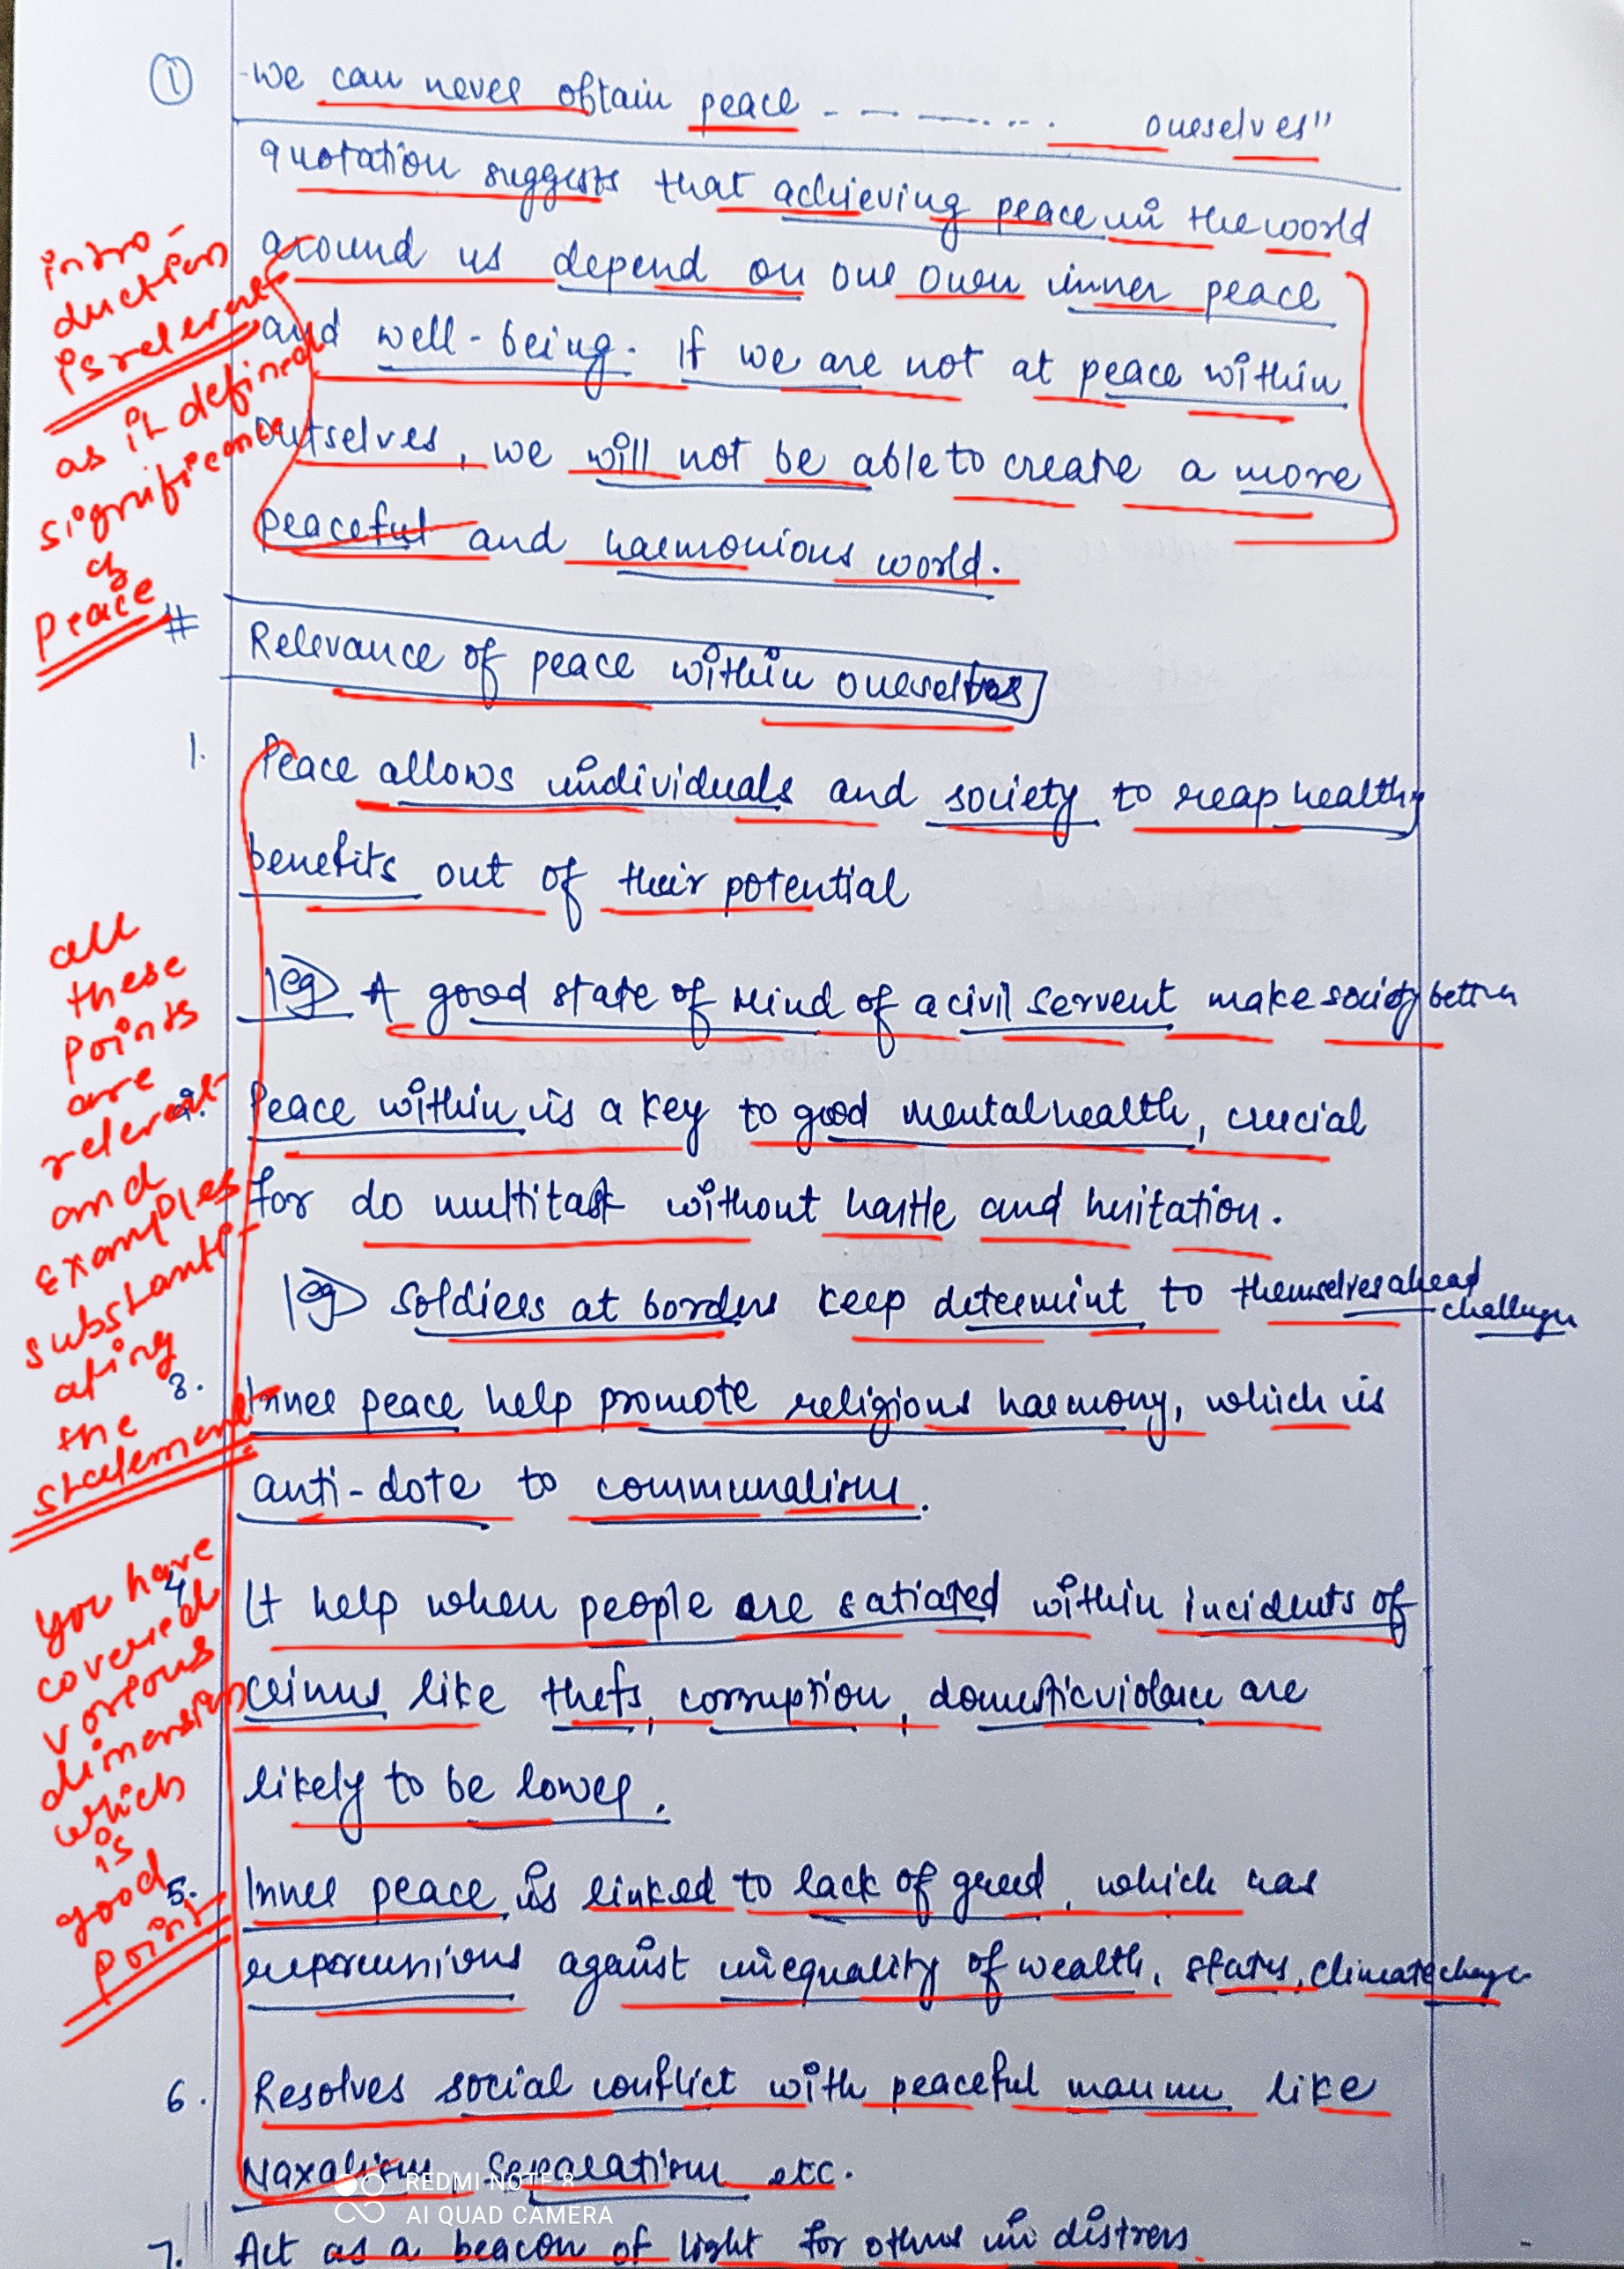 ① "We can never obtain peace - - - - - - - ... ourselves"
quotation suggests that achieving peace in the world
around us depend on our own inner peace
and well-being. If we are not at peace within
outselves, we will not be able to create a more
peaceful and harmonious world.
# Relevance of peace within ourselves
1. Peace allows individuals and society to reap healthy
benefits out of their potential
eg A good state of mind of a civil servent make society better
2. Peace within is a key to good mental health, crucial
for do multitask without and hesitation.
eg Soldiers at borders keep to themselves ahead
challenges
3. Inner peace help promote religious harmony, which is
anti-dote to communalism.
4. It help when people are satiated within incidents of
crimes like thefs, corruption, domestic violence are
likely to be lower.
5. Inner peace is linked to lack of greed, which has
against inequality of wealth, status, climate change
6. Resolves social conflict with peaceful manner like
Naxalism, Separatism etc.
7. Act as a beacon of light for others in distress.
intro-
duction
is relevant
as it defined
significance
of
Peace
all
these
points
are
relevant
and
Examples
substanti-
ating
the
statement
you have
covered
various
dimension
which
is
good
point
REDMI NOTE 8
AI QUAD CAMERA